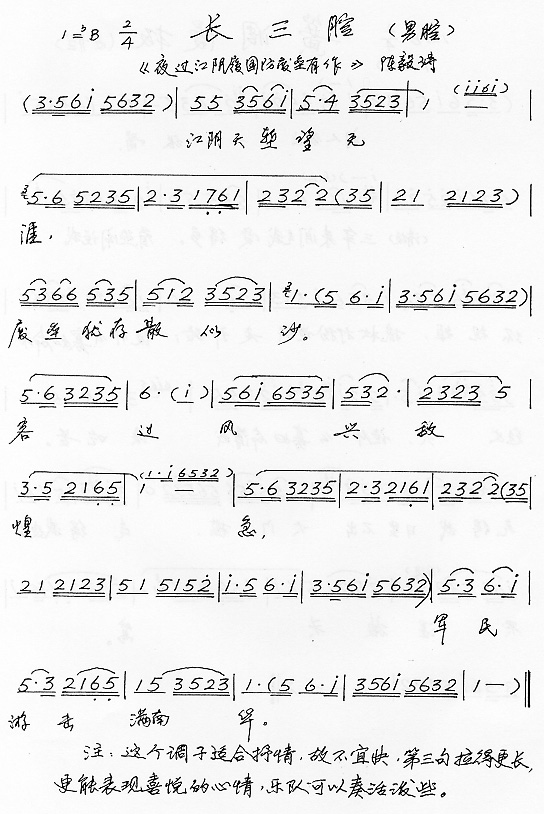 1=ᵇB 2/4 长三腔（男腔）
《夜过江阴履国防废垒有作》 陈毅诗
(3·56i 5632)|55 3561|5·4 3523|1 (ii6i)|
江阴天堑望无
5·6 5235|2·3 1761|232 2(35|21 2123)|
涯，
5366 535|512 3523|1·(5 6·i|3·56i 5632)|
废垒犹存散似沙。
5·6 3235|6·(i)|56i 6535|532·|2323 5
客过风兴敌
3·5 2165|1 — (1·i 6532)|5·6 3235|2·3 2161|232 2(35|
惶急，
21 2123|51 5152|i·5 6·i|3·56i 5632)|5·3 6·i|
军民
5·3 2165|15 3523|1·(5 6·i|356i 5632|1—)‖
游击满南
注：这个调子适合抒情，故不宜快，第三句拉得更长，
更能表现喜悦的心情，乐队可以奏活泼些。